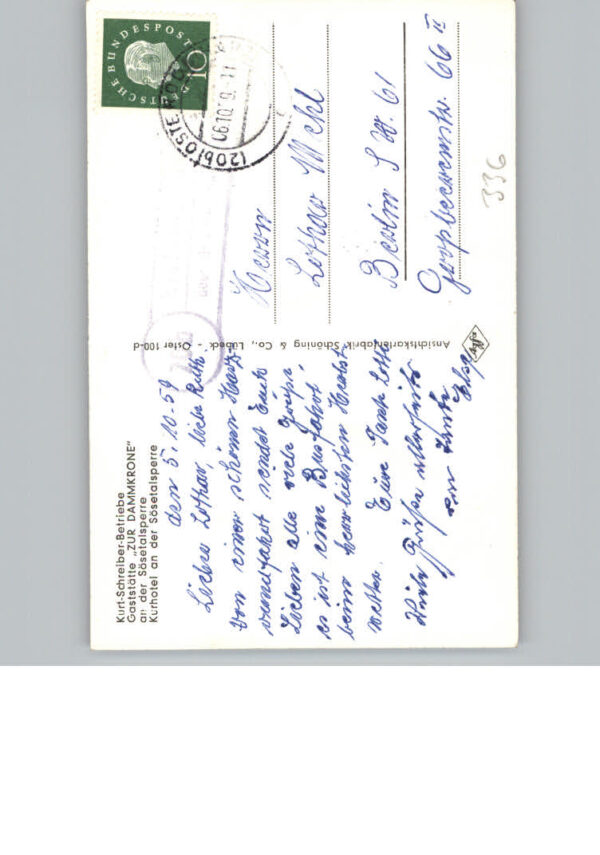 Kurt-Schreiber-Betriebe
Gaststätte „ZUR DAMMKRONE"
an der Sösetalsperre
Kurhotel an der Sösetalsperre
den 5.10.59
Lieber Lothar, liebe Ruth
Von einer schönen Harz-
rundfahrt sendet Euch
Lieben alle viele Grüße
es ist eine Busfahrt
beim herrlichsten Herbst
wetter. Eure Tante Lotte
Viele Grüße allerseits
von Tante Elsa
Ansichtskartenfabrik Schöning & Co., Lübeck - Oster 100-d
Agfa
DEUTSCHE BUNDESPOST
10
(20b) OSTERODE
06.10.59.-11
20b
Herrn
Lothar Mehl
Berlin S.W. 61
Großbeerenstr. 66 II
336